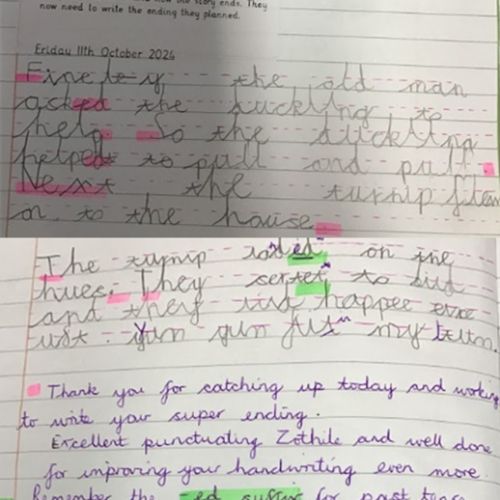 the story ends. They
now need to write the ending they planned.
Friday 11th October 2024
Finelly the old man
asked the duckling to
help. So the duckling
helped to pull and pull.
Next the turnip flew
in to the house.
The turnip on the
hues. They to
and they happee
Yum yum my tum.
Thank you for catching up today and working
to write your super ending.
Excellent punctuating Zothile and well done
for improving your handwriting even more.
Remember the -ed suffix for past tense